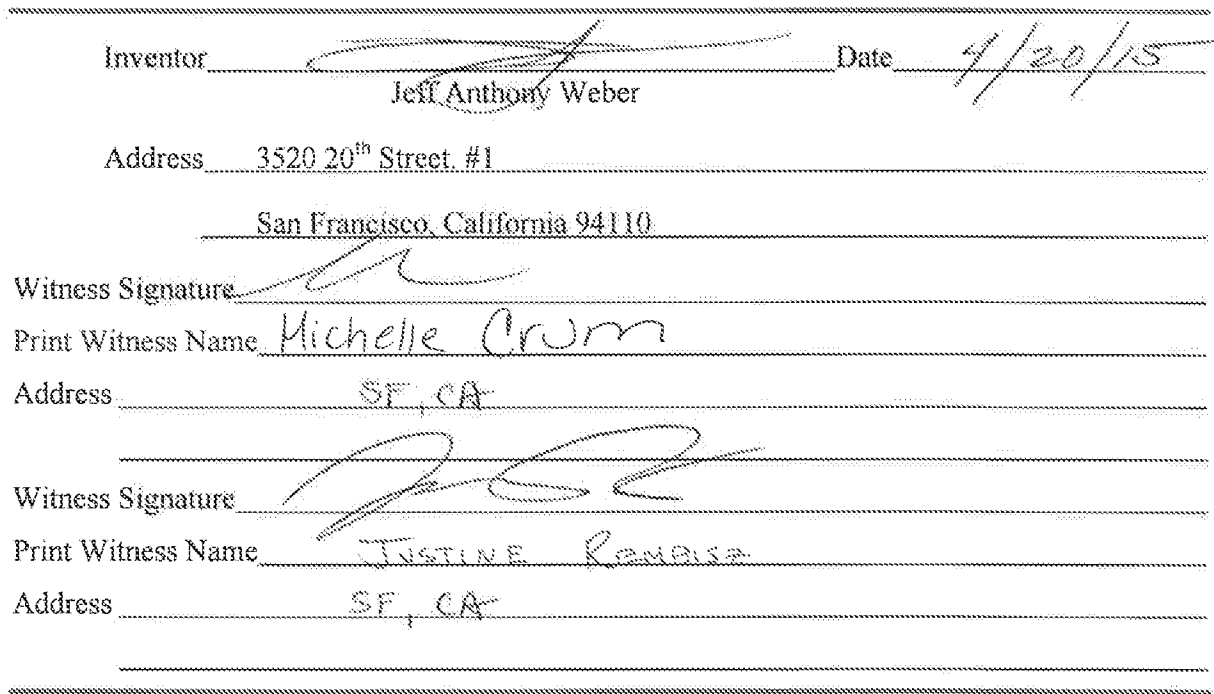 Inventor Date 4/20/15
Jeff Anthony Weber
Address 3520 20th Street. #1
San Francisco, California 94110
Witness Signature
Print Witness Name Michelle Crum
Address SF, CA
Witness Signature
Print Witness Name JUSTINE
Address SF, CA